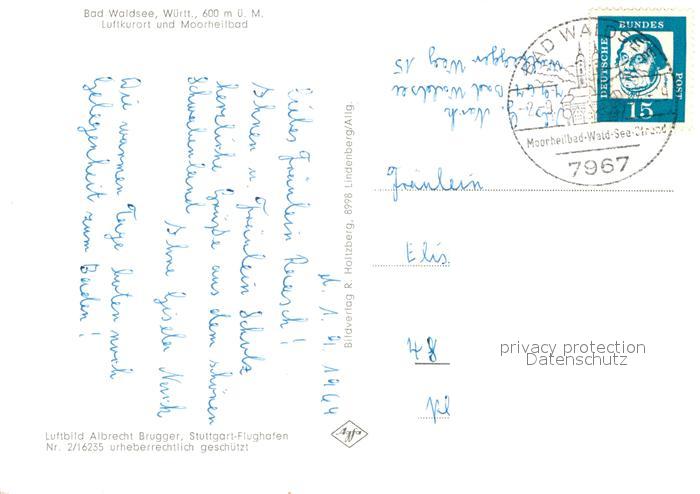 Bad Waldsee, Württ., 600 m ü. M.
Luftkurort und Moorheilbad
d. 1. 9. 1964
Liebes Fräulein Raasch!
Ihnen u. Fräulein Schulz
herzliche Grüße aus dem schönen
Schwabenland
Ihre Gisela
Die warmen Tage boten noch
Gelegenheit zum Baden!
Luftbild Albrecht Brugger, Stuttgart-Flughafen
Nr. 2/16235 urheberrechtlich geschützt
Bildverlag R. Holtzberg, 8998 Lindenberg/Allg.
agfa
7967 Bad Waldsee
Weg 15
DEUTSCHE BUNDES POST
15
BAD WALDSEE
Moorheilbad-Wald-See-Strand
7967
Fräulein
Elis.
48
privacy protection
Datenschutz